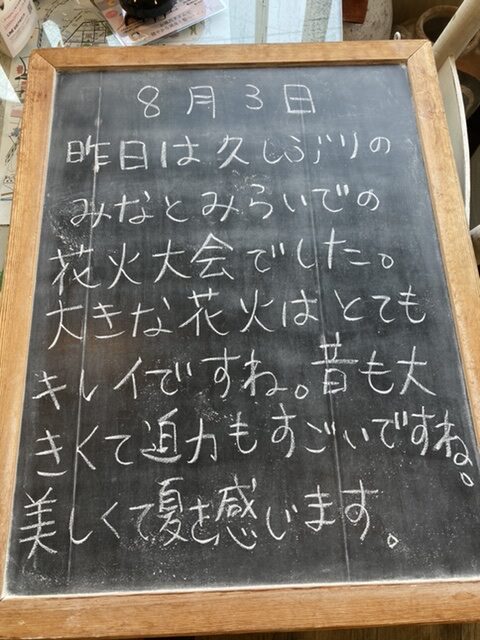 8月3日
昨日は久しぶりの
みなとみらいでの
花火大会でした。
大きな花火はとても
キレイですね。音も大
きくて迫力もすごいですね。
美しくて夏を感じます。